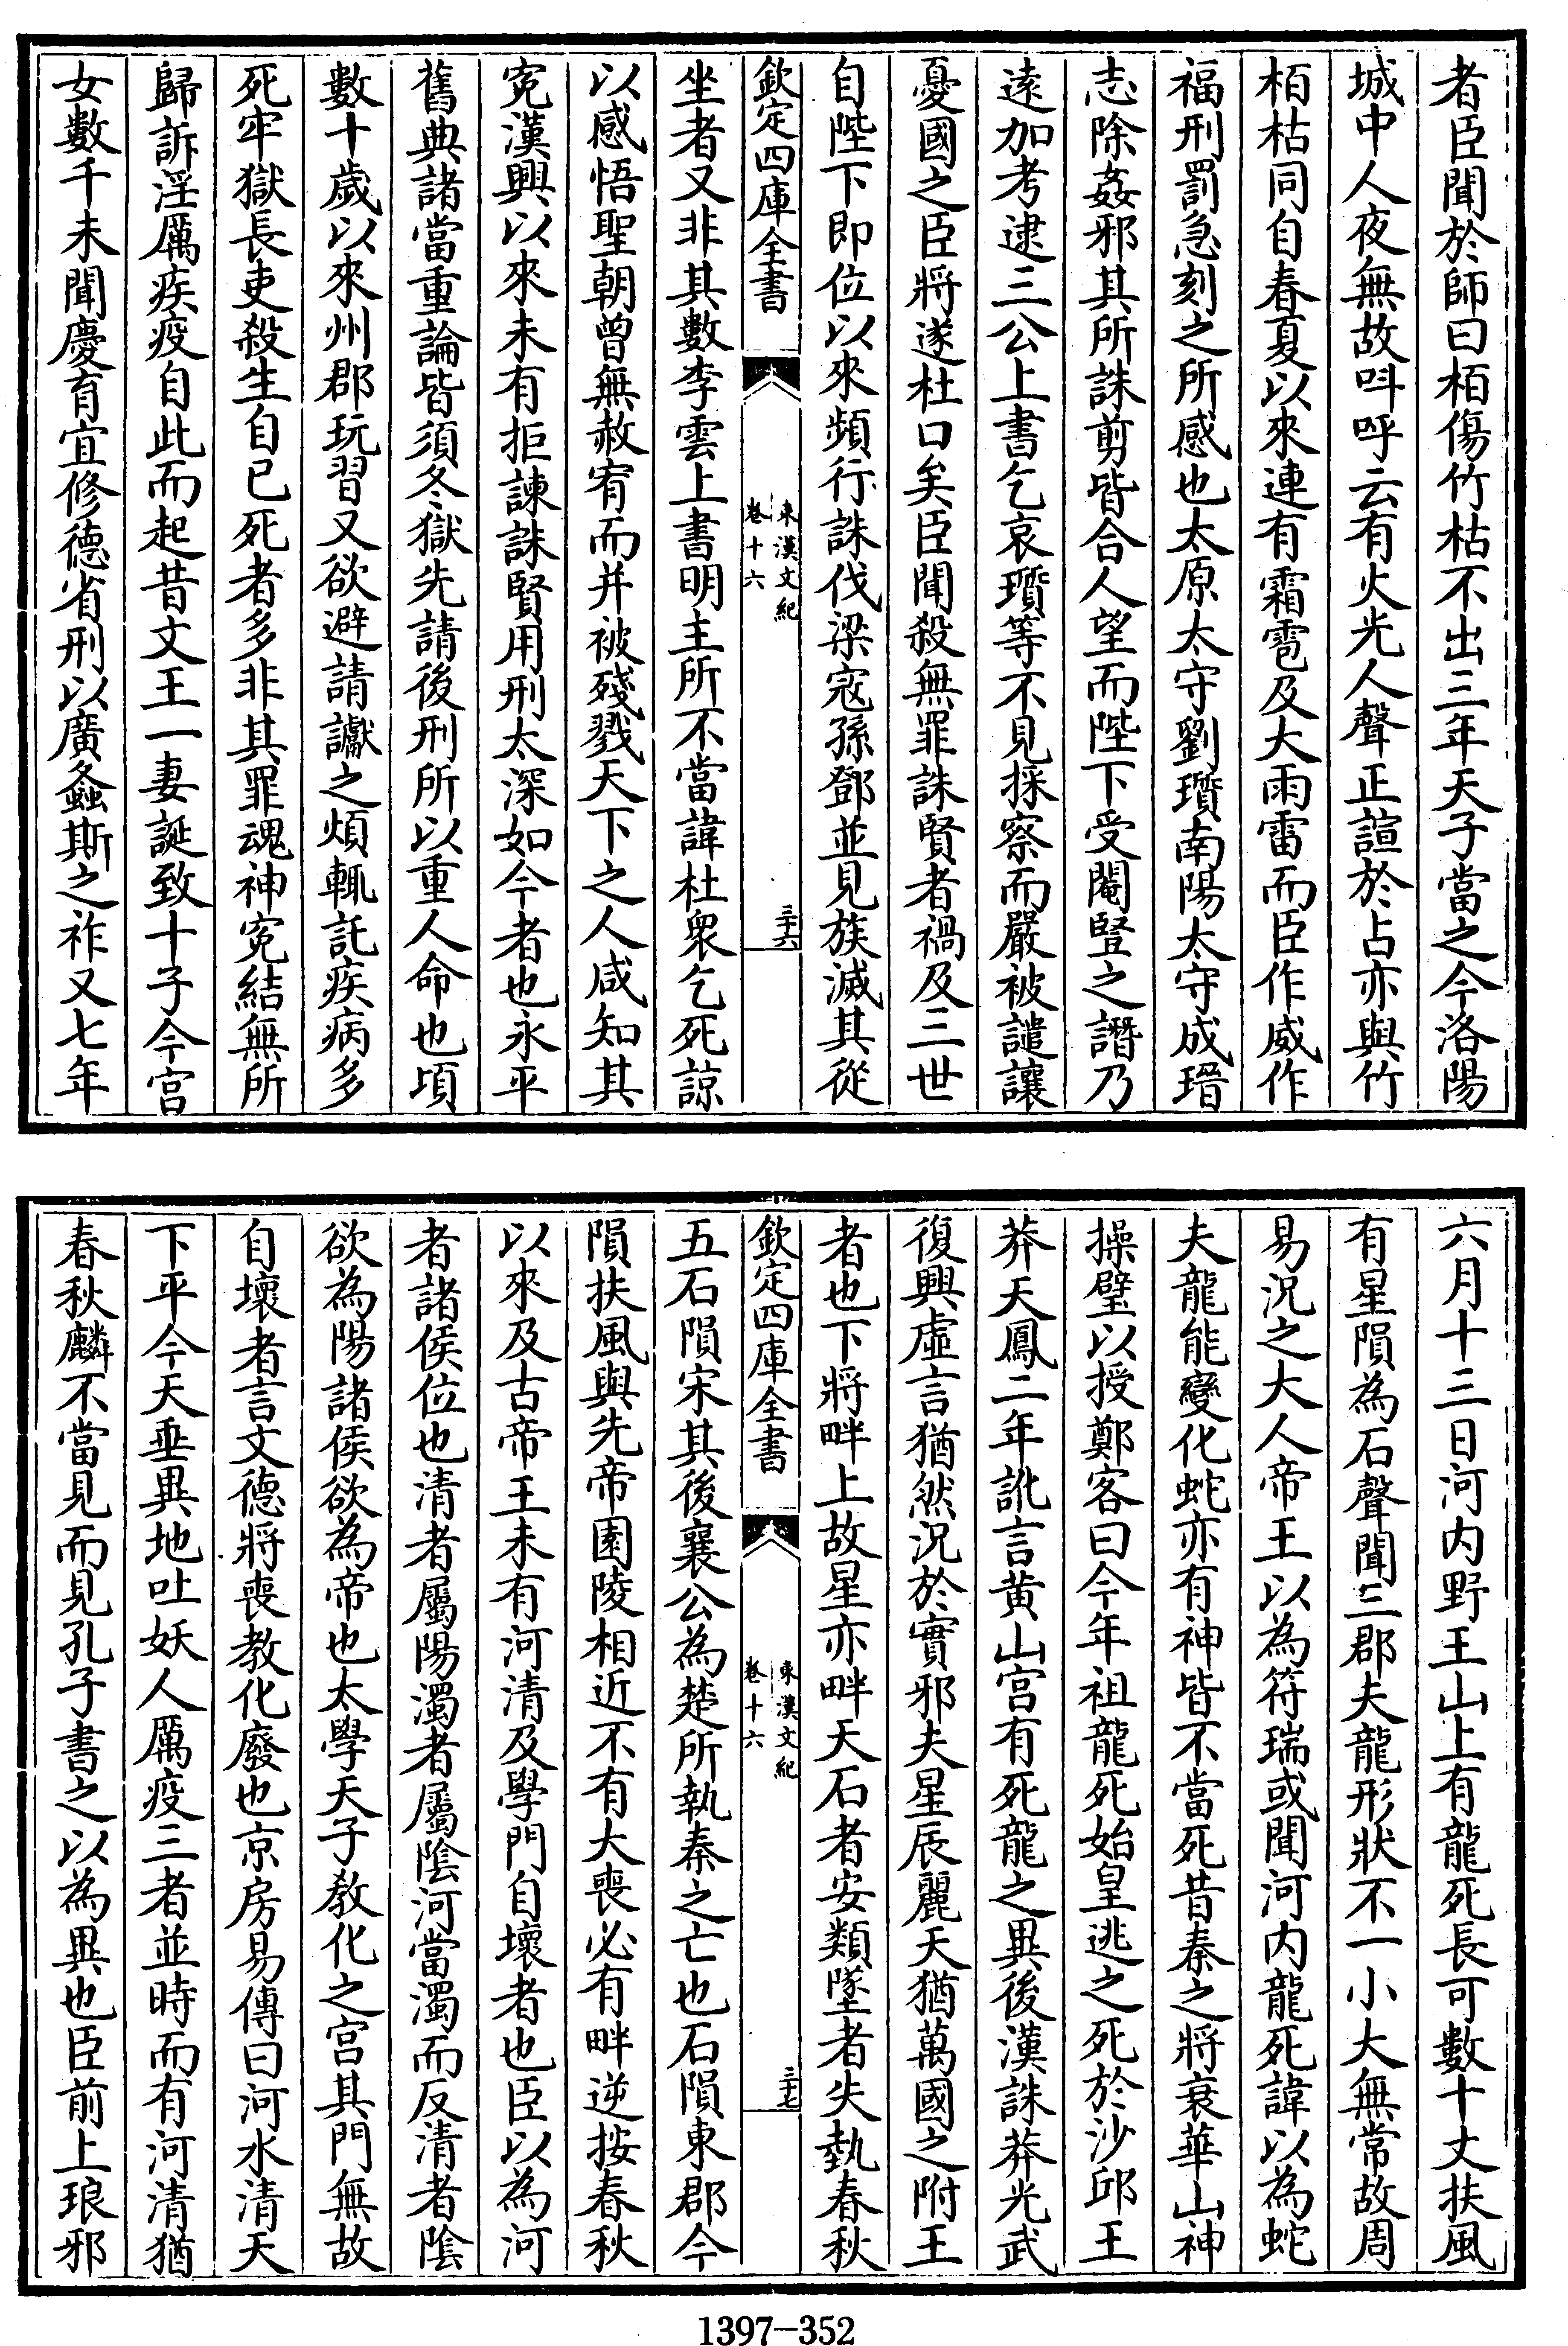 者臣聞於師曰栢傷竹枯不出三年天子當之今洛陽
城中人夜無故呌呼云有火光人聲正諠於占亦與竹
栢枯同自春夏以來連有霜雹及大雨雷而臣作威作
福刑罰急刻之所感也太原太守劉瓆南陽太守成瑨
志除姦邪其所誅剪皆合人望而陛下受閹豎之譖乃
逺加考逮三公上書乞哀瓆等不見採察而嚴被譴讓
憂國之臣將遂杜口矣臣聞殺無罪誅賢者禍及三世
自陛下即位以來頻行誅伐梁寇孫鄧並見族滅其從
欽定四庫全書
東漢文紀
卷十六
三十六
坐者又非其數李雲上書明主所不當諱杜衆乞死諒
以感悟聖朝曾無赦宥而并被殘戮天下之人咸知其
寃漢興以來未有拒諫誅賢用刑太深如今者也永平
舊典諸當重論皆須冬獄先請後刑所以重人命也頃
數十歲以來州郡玩習又欲避請讞之煩輒託疾病多
死牢獄長吏殺生自已死者多非其罪魂神寃結無所
歸訴淫厲疾疫自此而起昔文王一妻誕致十子今宮
女數千未聞慶育宜修德省刑以廣螽斯之祚又七年
六月十三日河内野王山上有龍死長可數十丈扶風
有星隕為石聲聞三郡夫龍形狀不一小大無常故周
易況之大人帝王以為符瑞或聞河内龍死諱以為蛇
夫龍能變化蛇亦有神皆不當死昔秦之將衰華山神
操璧以授鄭客曰今年祖龍死始皇逃之死於沙邱王
莽天鳳二年訛言黄山宮有死龍之異後漢誅莽光武
復興虛言猶然況於實邪夫星辰麗天猶萬國之附王
者也下將畔上故星亦畔天石者安類墜者失埶春秋
欽定四庫全書
東漢文紀
卷十六
三十七
五石隕宋其後襄公為楚所執秦之亡也石隕東郡今
隕扶風與先帝園陵相近不有大喪必有畔逆按春秋
以來及古帝王未有河清及學門自壞者也臣以為河
者諸侯位也清者屬陽濁者屬陰河當濁而反清者陰
欲為陽諸侯欲為帝也太學天子教化之宮其門無故
自壞者言文德將喪教化廢也京房易傳曰河水清天
下平今天垂異地吐妖人厲疫三者並時而有河清猶
春秋麟不當見而見孔子書之以為異也臣前上琅邪
1397-352